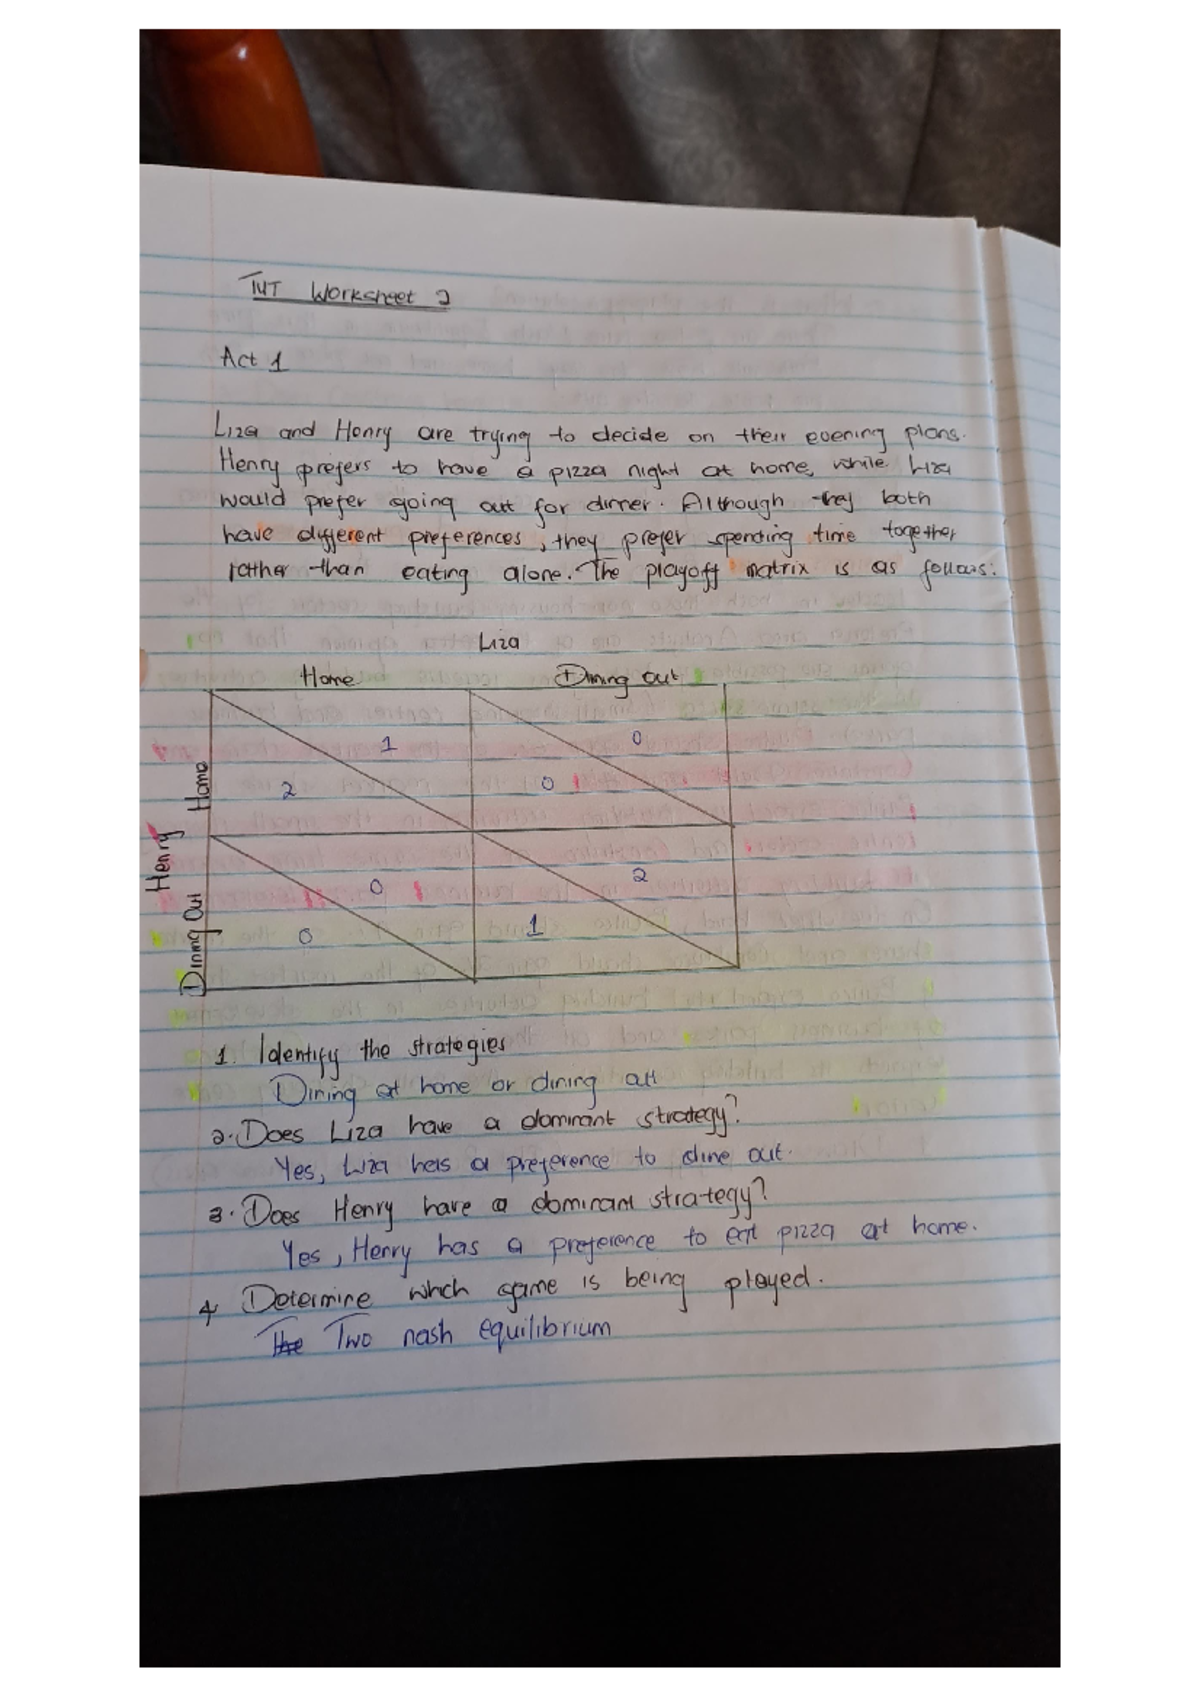 TUT Worksheet 2
Act 1
Liza and Henry are trying to decide on their evening plans.
Henry prefers to have a pizza night at home, while Liza
would prefer going out for dinner. Although they both
have different preferences, they prefer spending time together
rather than eating alone. The playoff matrix is as follows:
Liza
Home Dining out
Henry
Home
1 0
2 0
Dining Out
0 2
0 1
1. Identify the strategies
Dining at home or dining out
2. Does Liza have a dominant strategy?
Yes, Liza has a preference to dine out.
3. Does Henry have a dominant strategy?
Yes, Henry has a preference to eat pizza at home.
4 Determine which game is being played.
The Two nash equilibrium